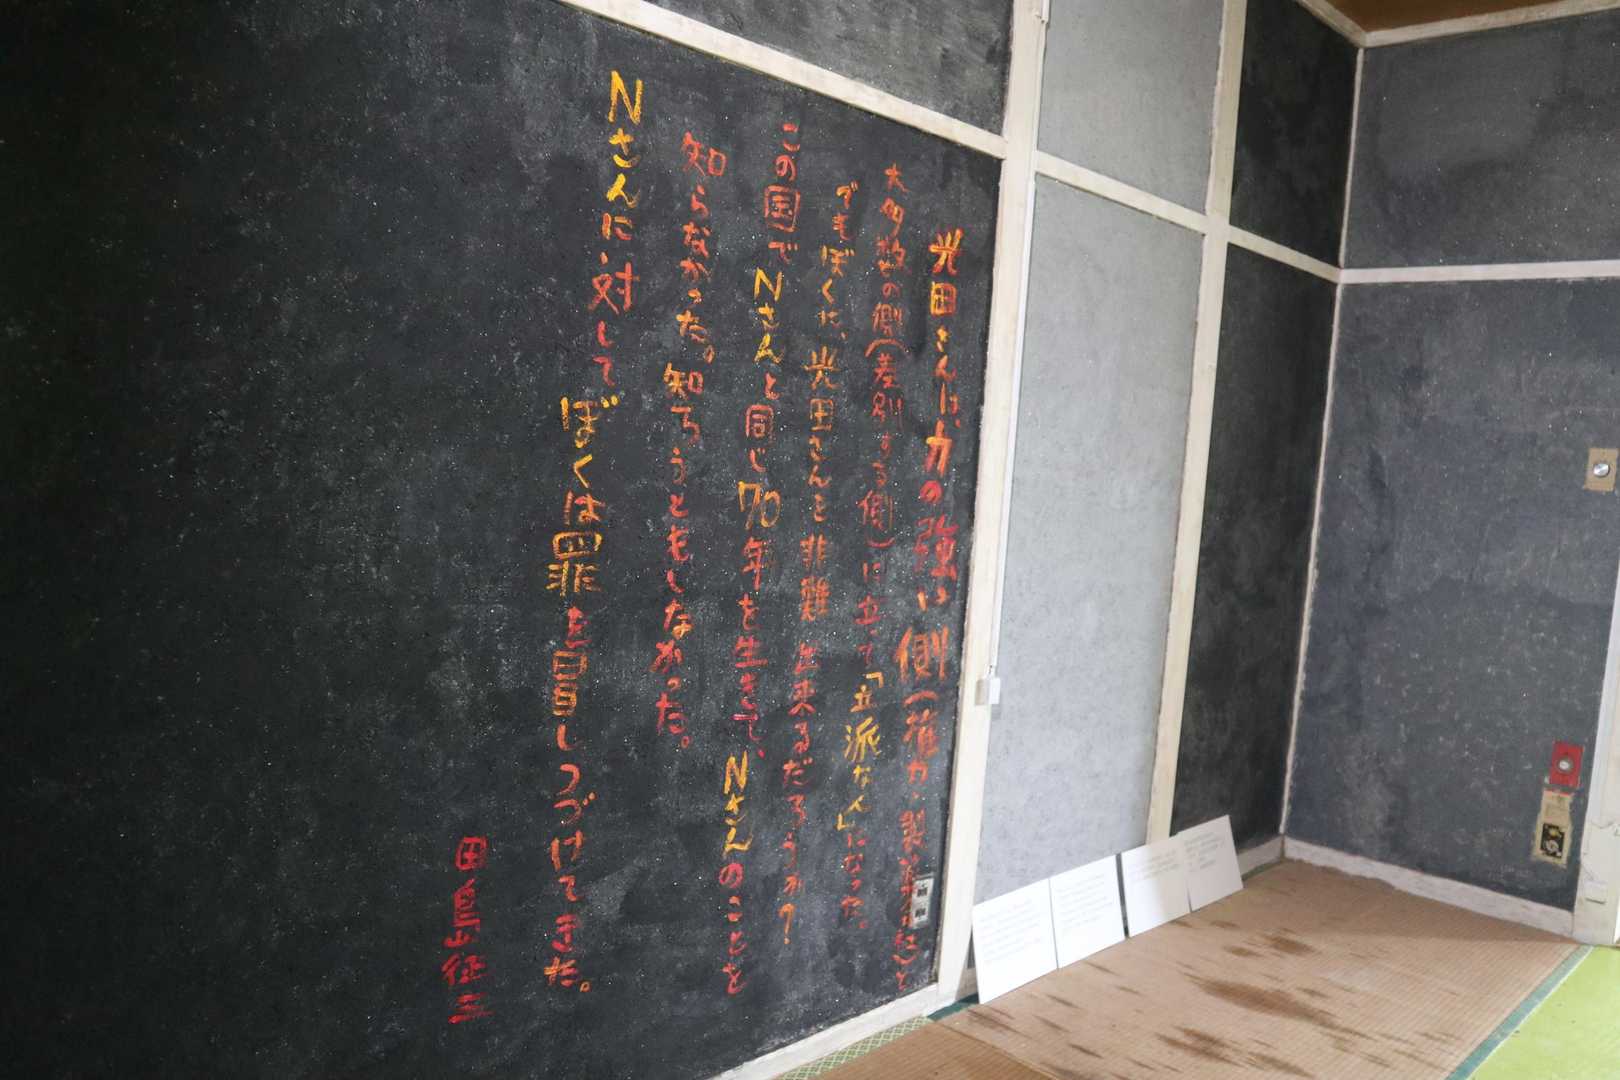 光田さんは、力の強い側(権力・製薬会社)と
大多数の側(差別する側)に立って「立派な人」になった。
でもぼくに、光田さんを非難出来るだろうか?
この国でNさんと同じ70年を生きて、Nさんのことを
知らなかった。知ろうともしなかった。
Nさんに対してぼくは罪を冒しつづけてきた。
田島征三